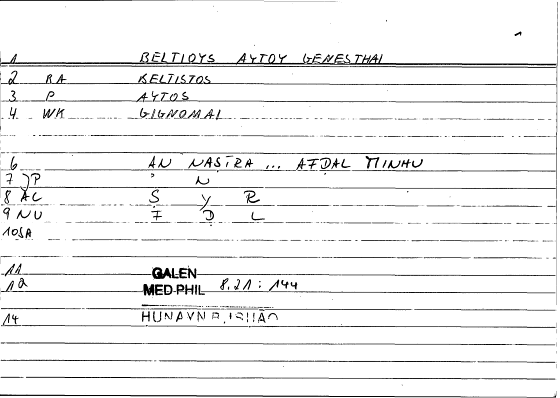 1 BELTIOYS AYTOY GENESTHAI
2 RA BELTISTOS
3 P AYTOS
4 WK GIGNOMAI
6 AN NASIRA ... AFDAL MINHU
7 JP ' N
8 AC S Y R
9 NU F D L
10 SA
11 GALEN
12 MED-PHIL 8,21 : 144
14 HUNAYN B. ISHAQ